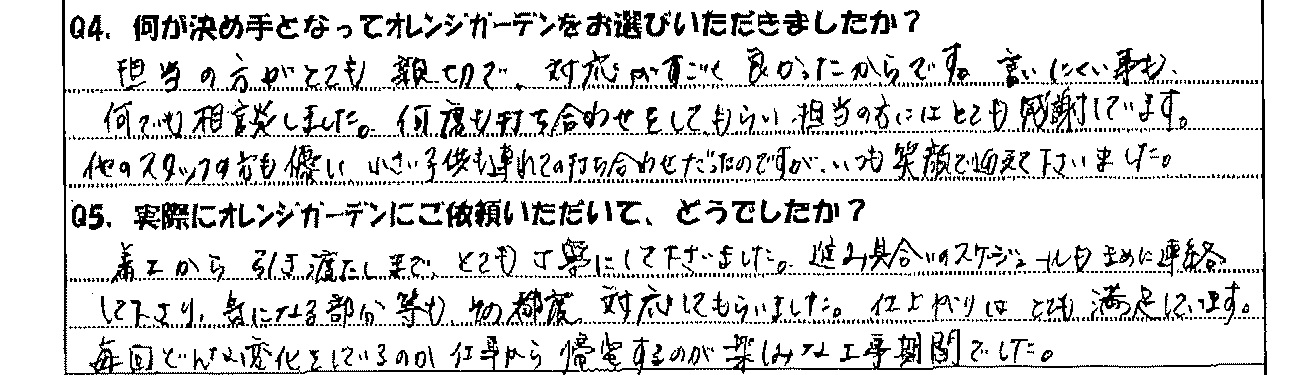 Q4. 何が決め手となってオレンジガーデンをお選びいただきましたか？
担当の方がとても親切で、対応がすごく良かったからです。言いにくい事も、
何でも相談しました。何度も打ち合わせをしてもらい担当の方にはとても感謝しています。
他のスタッフの方も優しい 小さい子供も連れての打ち合わせだったのですが、いつも笑顔で迎えて下さいました。
Q5. 実際にオレンジガーデンにご依頼いただいて、どうでしたか？
着工から引き渡しまで、とても丁寧にして下さいました。進み具合いのスケジュールもまめに連絡
して下さり、気になる部分等も、その都度、対応してもらいました。仕上がりはとても満足しています。
毎回どんな変化をしているのか仕事から帰宅するのが楽しみな工事期間でした。